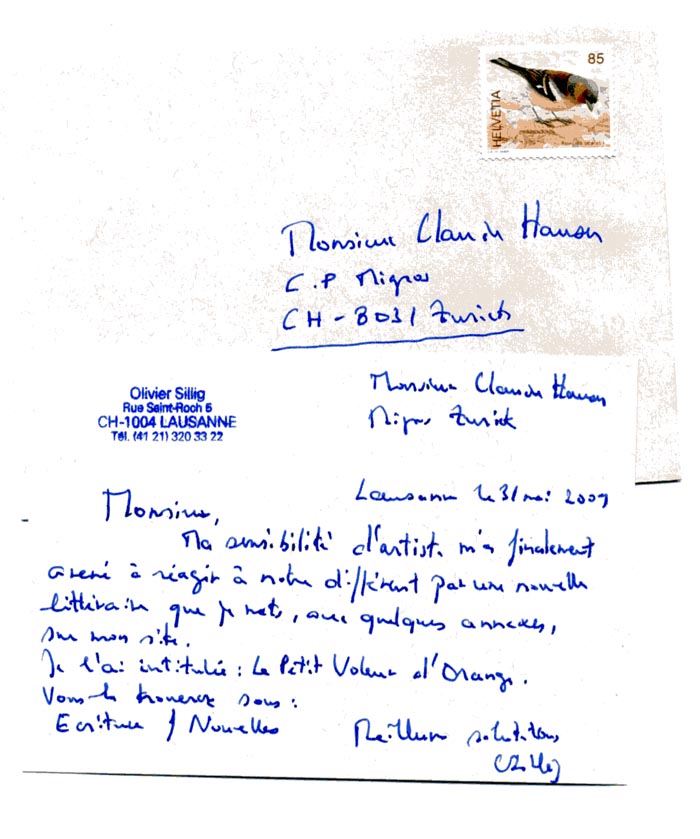 85
HELVETIA
Monsieur Claude Hauser
C.P Migros
CH-8031 Zurich
Olivier Sillig
Rue Saint-Roch 5
CH-1004 LAUSANNE
Tél. (41 21) 320 33 22
Monsieur Claude Hauser
Migros Zurich
Lausanne le 31 mai 2009
Monsieur,
Ma sensibilité d'artiste m'a finalement
amené à réagir à notre différent par une nouvelle
littéraire que je mets, avec quelques annexes,
sur mon site.
Je l'ai intitulée : Le Petit Voleur d'Orange.
Vous la trouverez sous :
Ecriture / Nouvelles
Meilleures salutations